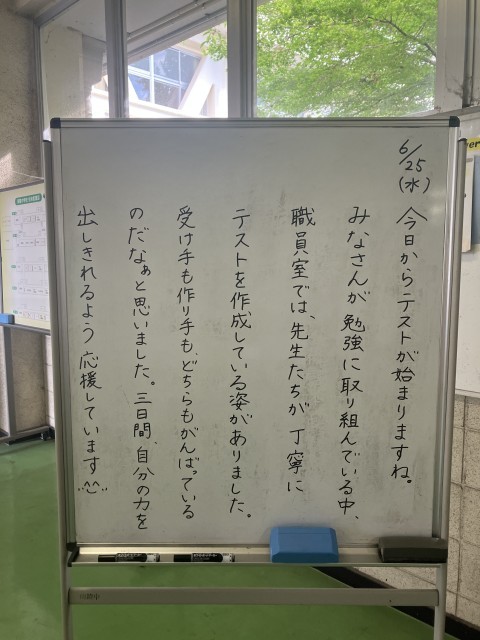 6/25(水)
今日からテストが始まりますね。
みなさんが勉強に取り組んでいる中、
職員室では、先生たちが丁寧に
テストを作成している姿がありました。
受け手も作り手も、どちらもがんばっている
のだなぁと思いました。三日間、自分の力を
出しきれるよう応援しています^^